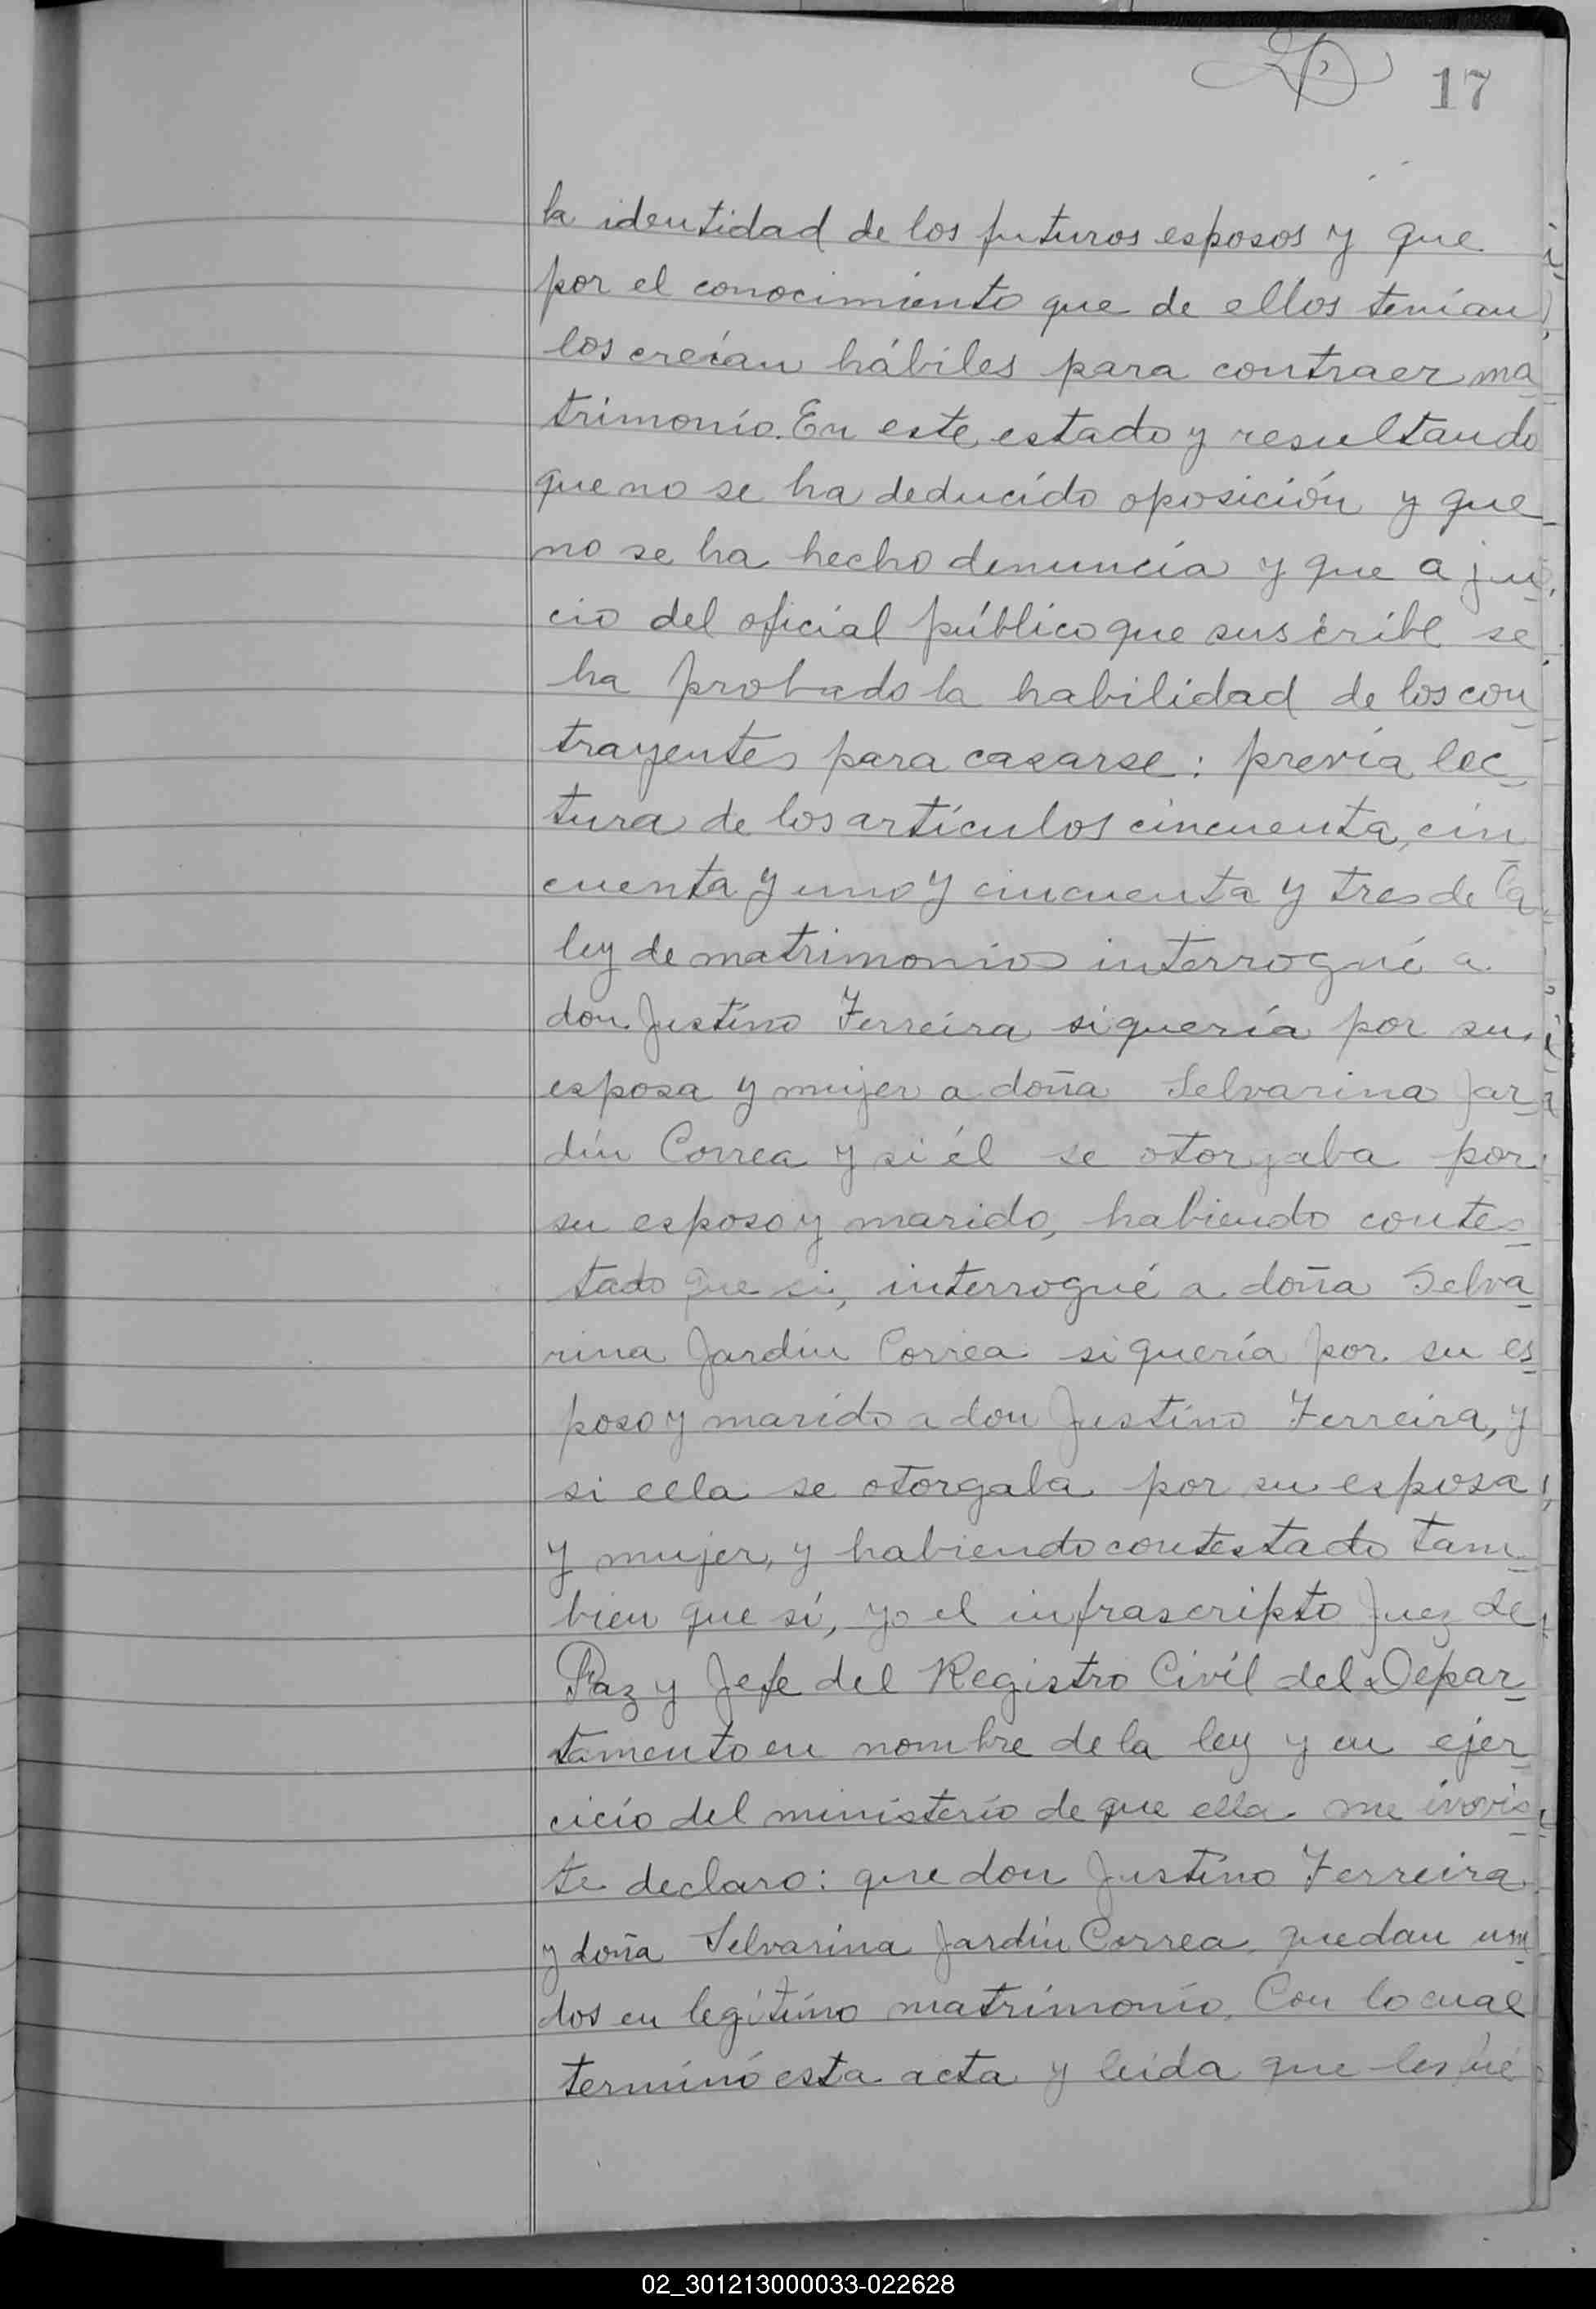 17
la identidad de los futuros esposos y que
por el conocimiento que de ellos tenían
los creían hábiles para contraer ma
trimonio. En este estado y resultando
que no se ha deducido oposición y que
no se ha hecho denuncia y que a jui
cio del oficial público que suscribe se
ha probado la habilidad de los con
trayentes para casarse: previa lec
tura de los artículos cincuenta, cin
cuenta y uno y cincuenta y tres de la
ley de matrimonio interrogué a
don Justino Ferreira si quería por su
esposa y mujer a doña Selvarina Jar
dín Correa y si él se otorgaba por
su esposo y marido, habiendo contes
tado que si, interrogué a doña Selva
rina Jardin Correa si quería por su es
poso y marido a don Justino Ferreira, y
si ella se otorgaba por su esposa
y mujer, y habiendo contestado tam
bien que sí, yo el infrascripto Juez de
Paz y Jefe del Registro Civil del Depar
tamento en nombre de la ley y en ejer
cicio del ministerio de que ella me invis
te declaro: que don Justino Ferreira
y doña Selvarina Jardin Correa quedan uni
dos en legítimo matrimonio. Con lo cual
terminó esta acta y leida que les fué
02_301213000033-022628